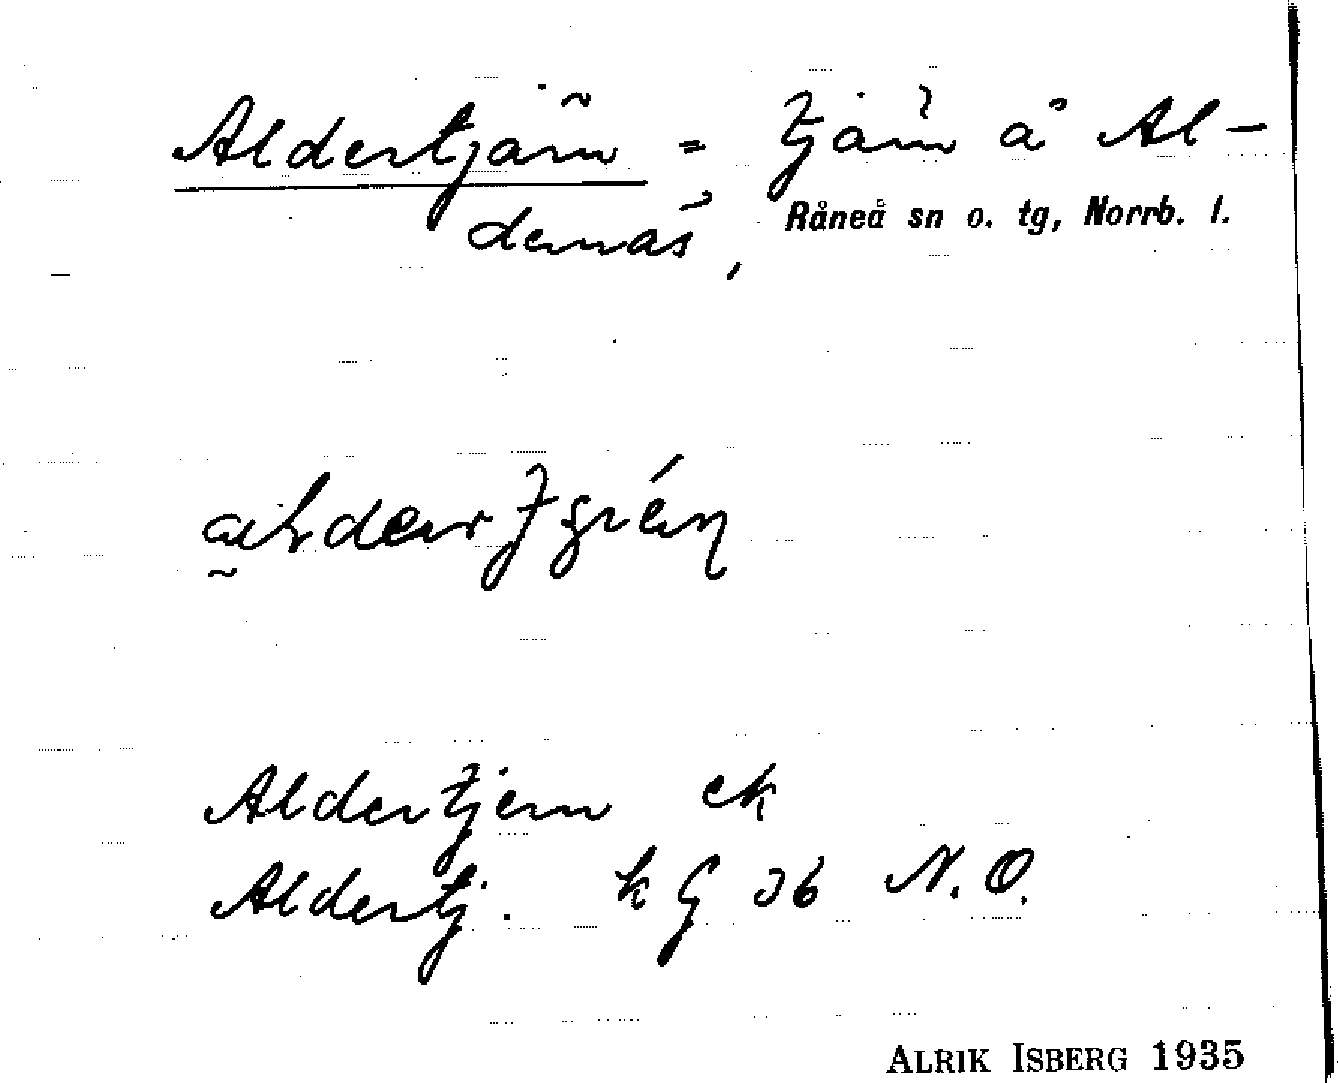 Aldertjärn = tjärn å Al-
dernäs, Råneå sn o. tg, Norrb. l.
Aldertjern ek
Aldertj. k G 36 N.O.
ALRIK ISBERG 1935